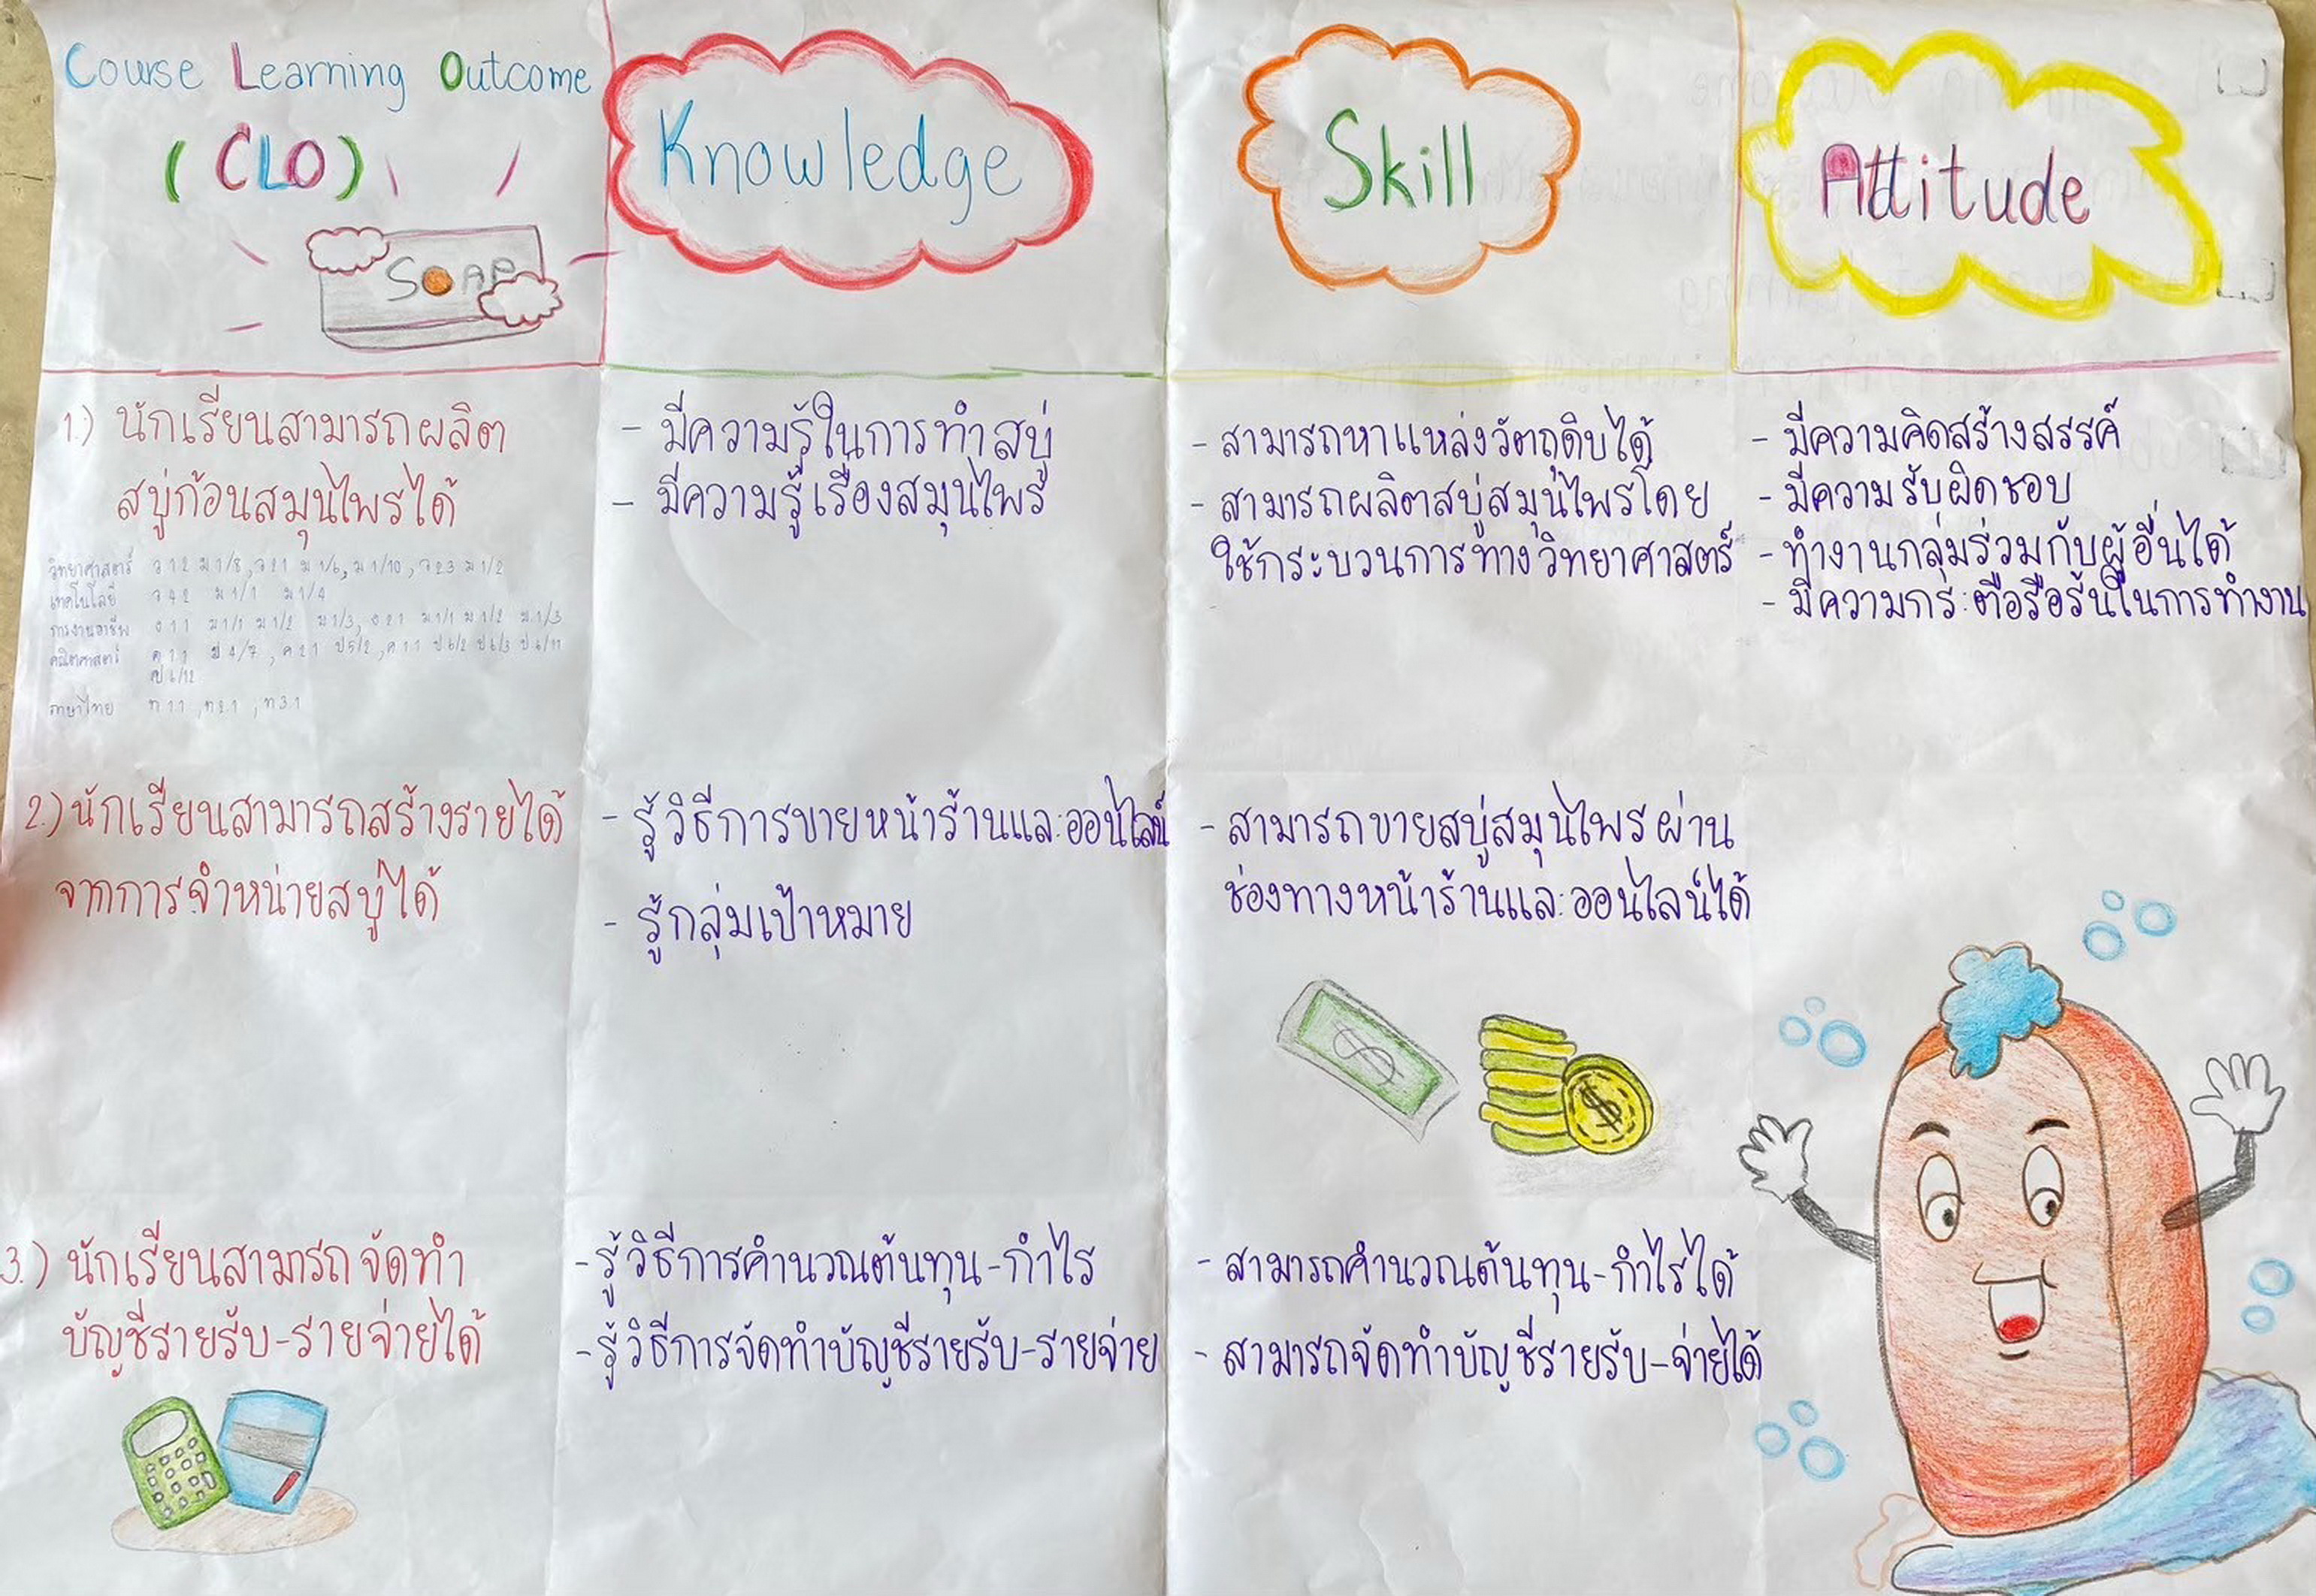 Course Learning Outcome
(CLO)
SOAP
Knowledge
Skill
Attitude
1.) นักเรียนสามารถผลิต
สบู่ก้อนสมุนไพรได้
วิทยาศาสตร์ ว 1.2 ม 1/8, ว 2.1 ม 1/6, ม 1/10, ว 2.3 ม 1/2
เทคโนโลยี ว 4.2 ม 1/1 ม 1/4
การงานอาชีพ ง 1.1 ม 1/1 ม 1/2 ม 1/3, ง 2.1 ม 1/1 ม 1/2 ม 1/3
คณิตศาสตร์ ค 1.1 ป 4/7, ค 2.1 ป 5/2, ค 1.1 ป 6/2 ป 6/3 ป 6/11
ป 6/12
ภาษาไทย ท 1.1, ท 2.1, ท 3.1
- มีความรู้ในการทำสบู่
- มีความรู้เรื่องสมุนไพร
- สามารถหาแหล่งวัตถุดิบได้
- สามารถผลิตสบู่สมุนไพรโดย
ใช้กระบวนการทางวิทยาศาสตร์
- มีความคิดสร้างสรรค์
- มีความรับผิดชอบ
- ทำงานกลุ่มร่วมกับผู้อื่นได้
- มีความกระตือรือร้นในการทำงาน
2.) นักเรียนสามารถสร้างรายได้
จากการจำหน่ายสบู่ได้
- รู้วิธีการขายหน้าร้านและออนไลน์
- รู้กลุ่มเป้าหมาย
- สามารถขายสบู่สมุนไพรผ่าน
ช่องทางหน้าร้านและออนไลน์ได้
3.) นักเรียนสามารถจัดทำ
บัญชีรายรับ-รายจ่ายได้
- รู้วิธีการคำนวณต้นทุน-กำไร
- รู้วิธีการจัดทำบัญชีรายรับ-รายจ่าย
- สามารถคำนวณต้นทุน-กำไรได้
- สามารถจัดทำบัญชีรายรับ-จ่ายได้